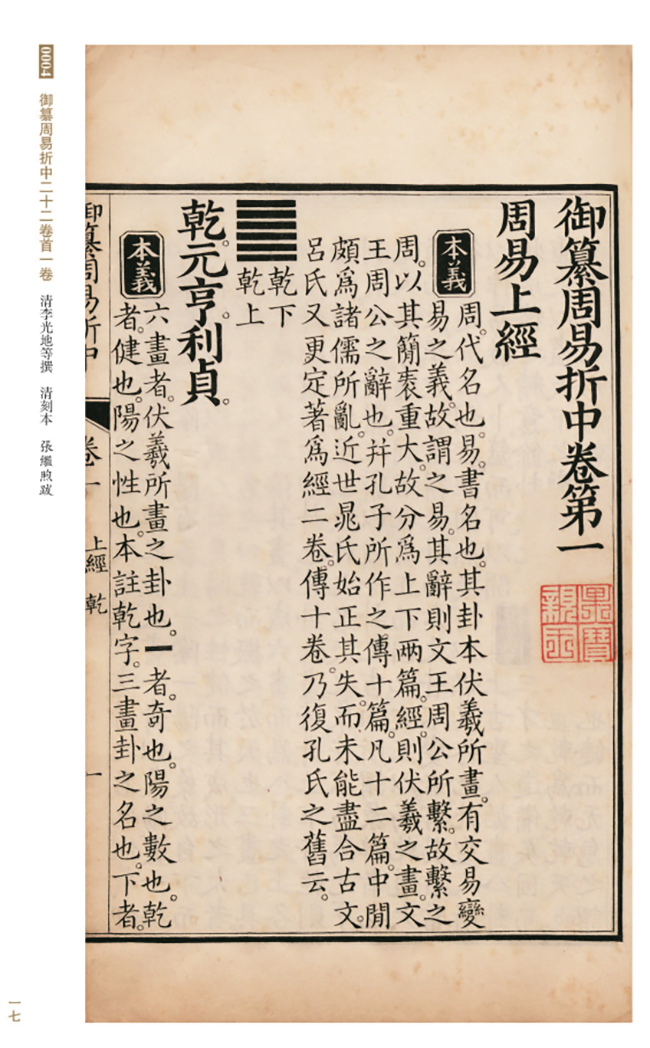 御纂周易折中卷第一
周易上經
本義
周。代名也。易。書名也。其卦本伏羲所畫。有交易變
易之義。故謂之易。其辭則文王周公所繫。故繫之
周。以其簡袠重大。故分爲上下兩篇。經則伏羲之畫。文
王周公之辭也。并孔子所作之傳十篇。凡十二篇。中間
頗爲諸儒所亂。近世晁氏始正其失。而未能盡合古文。
呂氏又更定著爲經二卷。傳十卷。乃復孔氏之舊云。
乾下
乾上
乾。元亨。利貞。
本義
六畫者。伏羲所畫之卦也。一者。奇也。陽之數也。乾
者。健也。陽之性也。本註乾字。三畫卦之名也。下者。
御纂周易折中
卷一
上經 乾
一
0004
御纂周易折中二十二卷首一卷 清李光地等撰 清刻本 張繼煦跋
一七